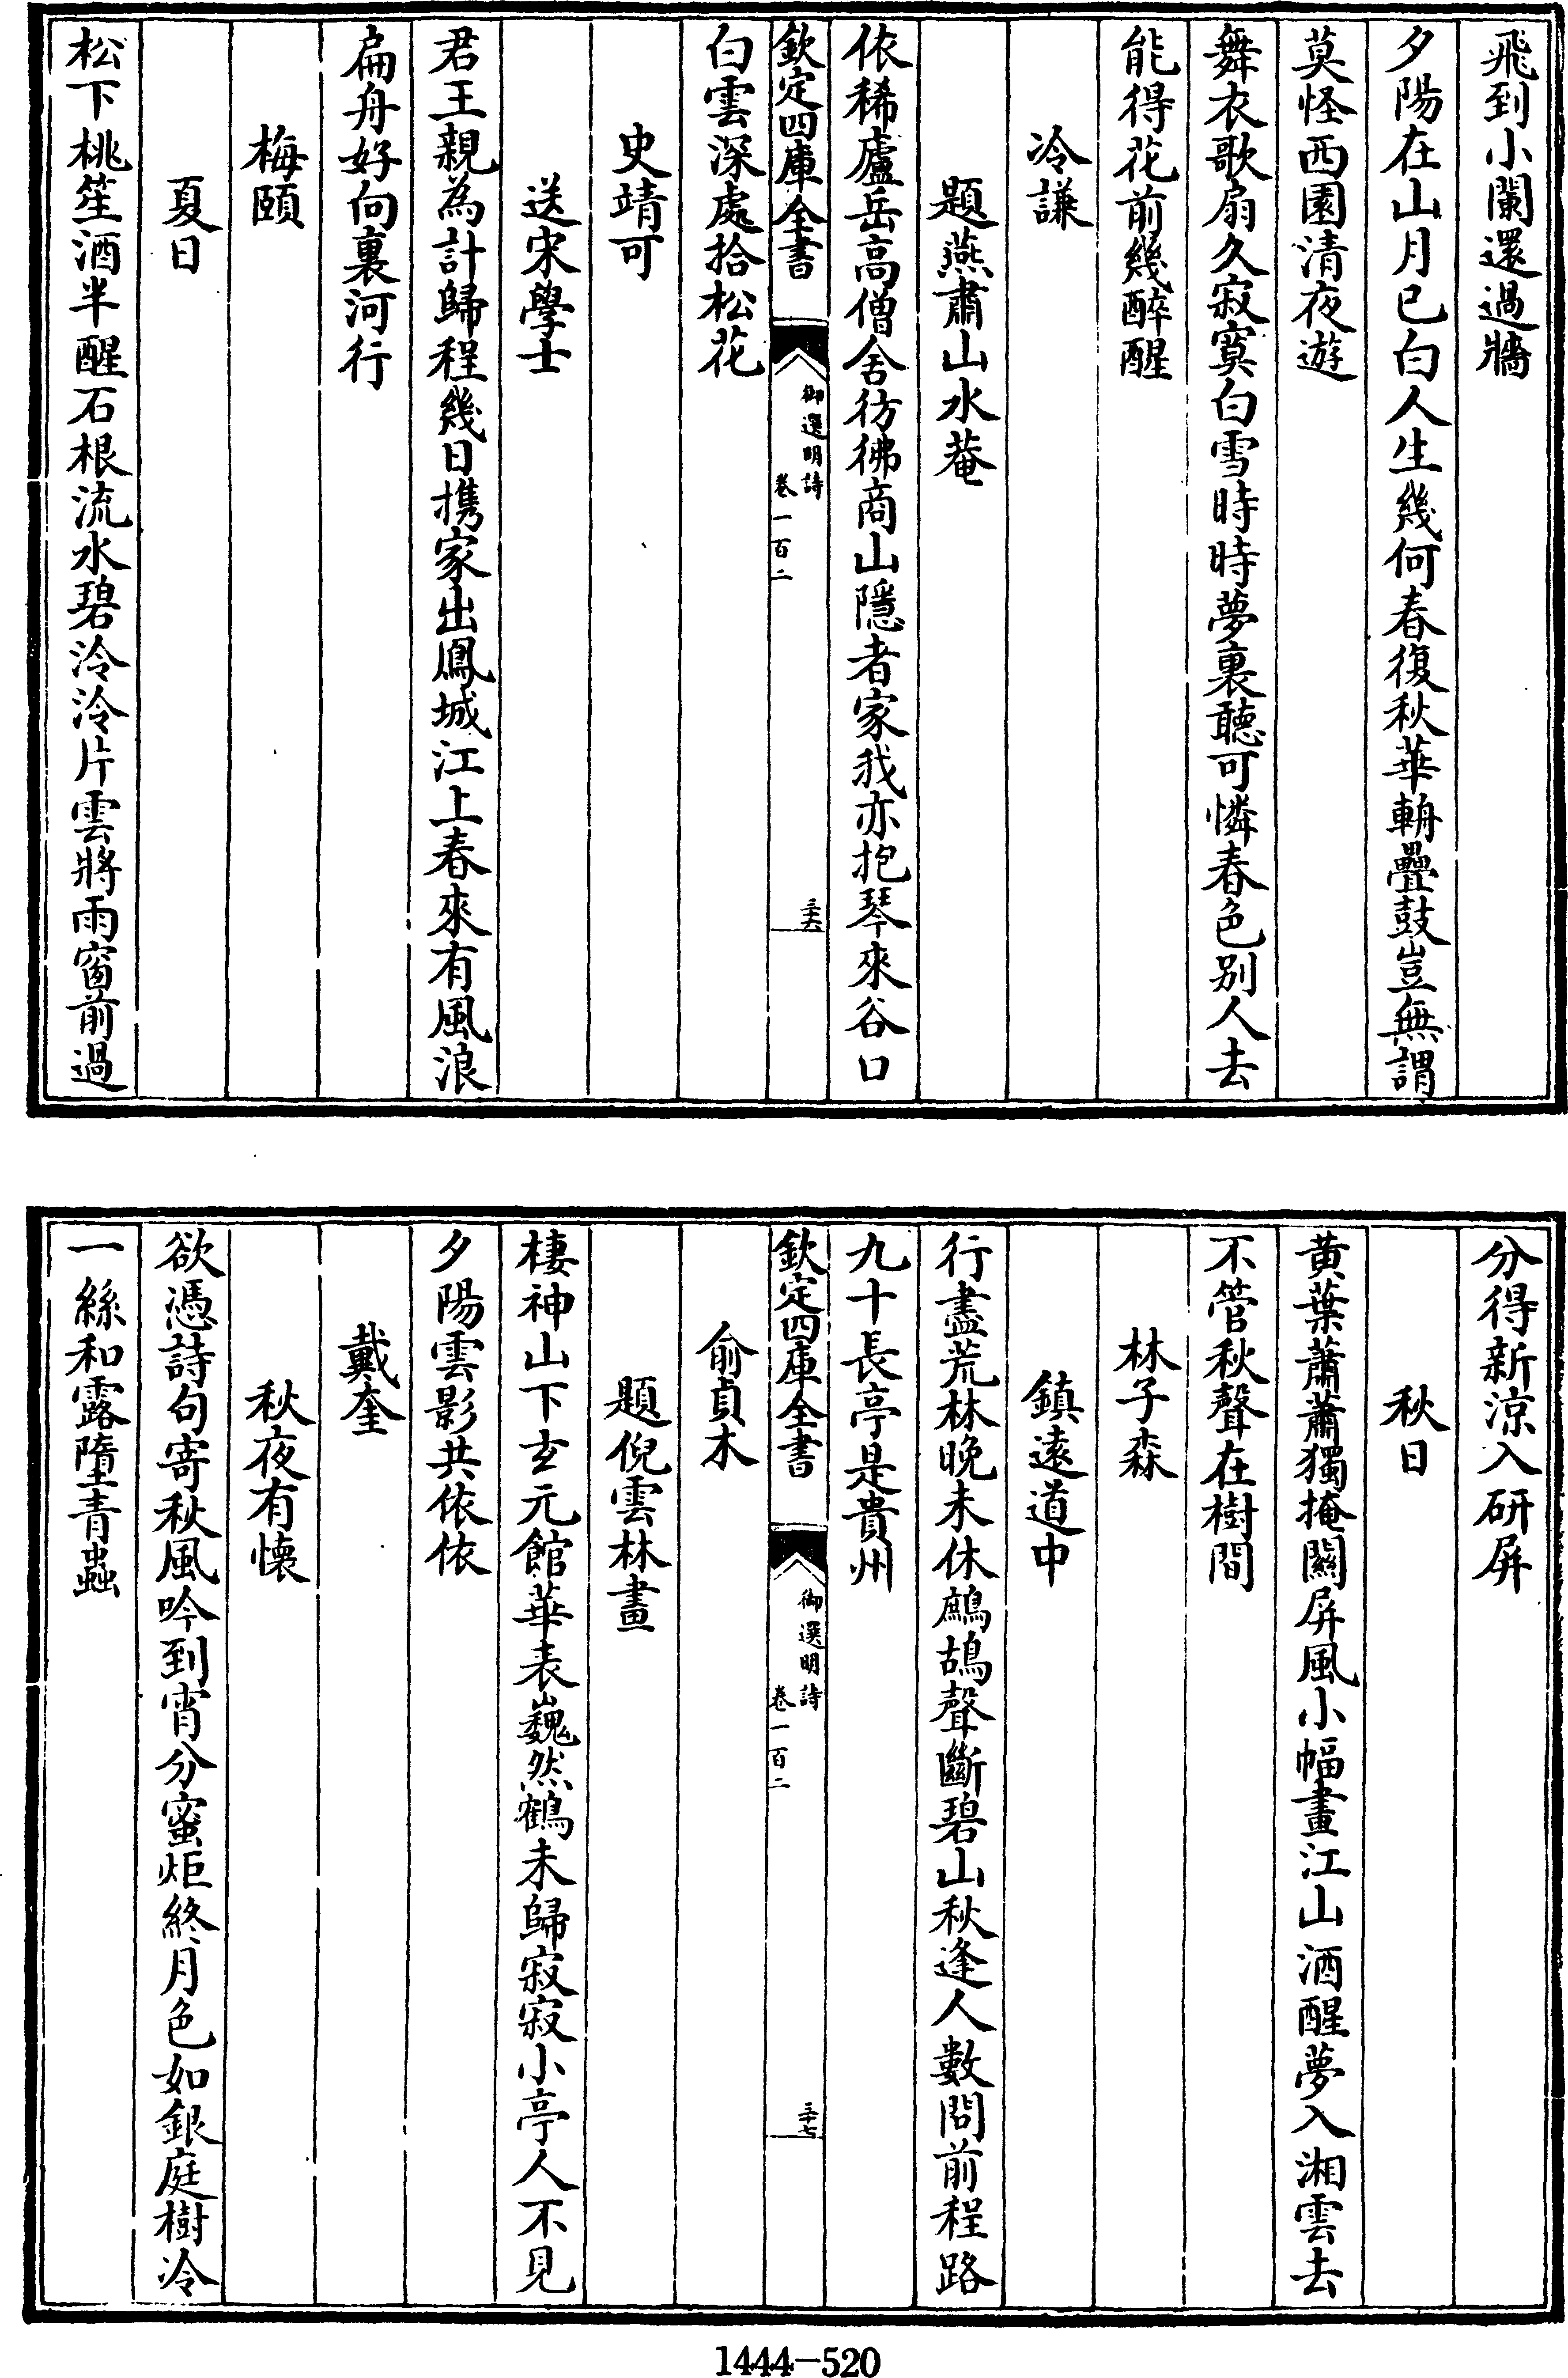 飛到小闌還過牆
夕陽在山月已白人生幾何春復秋華輈疊鼓豈無謂
莫怪西園清夜遊
舞衣歌扇久寂寞白雪時時夢裏聽可憐春色别人去
能得花前幾醉醒
冷謙
題燕肅山水菴
依稀廬岳高僧舍彷彿商山隱者家我亦抱琴來谷口
欽定四庫全書
御選明詩
卷一百二
三十六
白雲深處拾松花
史靖可
送宋學士
君王親為計歸程幾日携家出鳳城江上春來有風浪
扁舟好向裏河行
梅頤
夏日
松下桃笙酒半醒石根流水碧泠泠片雲將雨窗前過
分得新涼入研屏
秋日
黄葉蕭蕭獨掩關屏風小幅畫江山酒醒夢入湘雲去
不管秋聲在樹間
林子森
鎮遠道中
行盡荒林晚未休鷓鴣聲斷碧山秋逢人數問前程路
九十長亭是貴州
欽定四庫全書
御選明詩
卷一百二
三十七
俞貞木
題倪雲林畫
棲神山下玄元館華表巍然鶴未歸寂寂小亭人不見
夕陽雲影共依依
戴奎
秋夜有懷
欲憑詩句寄秋風吟到宵分蜜炬終月色如銀庭樹冷
一絲和露墮青蟲
1444-520